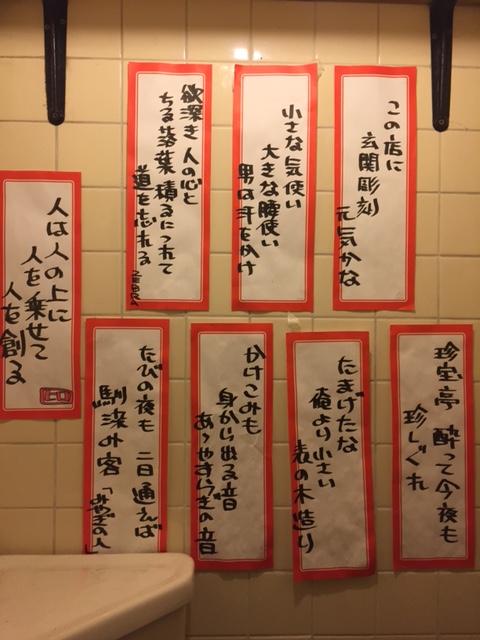 この店に
玄関彫刻
元気かな
小さな気使い
大きな腰使い
男は汗をかけ
欲深き人の心と
ちる落葉積るにつれて
道を忘れる
珍宝亭 酔って今夜も
珍しぐれ
たまげたな
俺より小さい
表の木造り
かけこみも
身から出る音
あゝやすらぎの音
たびの夜も 二日通えば
馴染み客 「みやぎの人」
人は人の上に
人を乗せて
人を創る